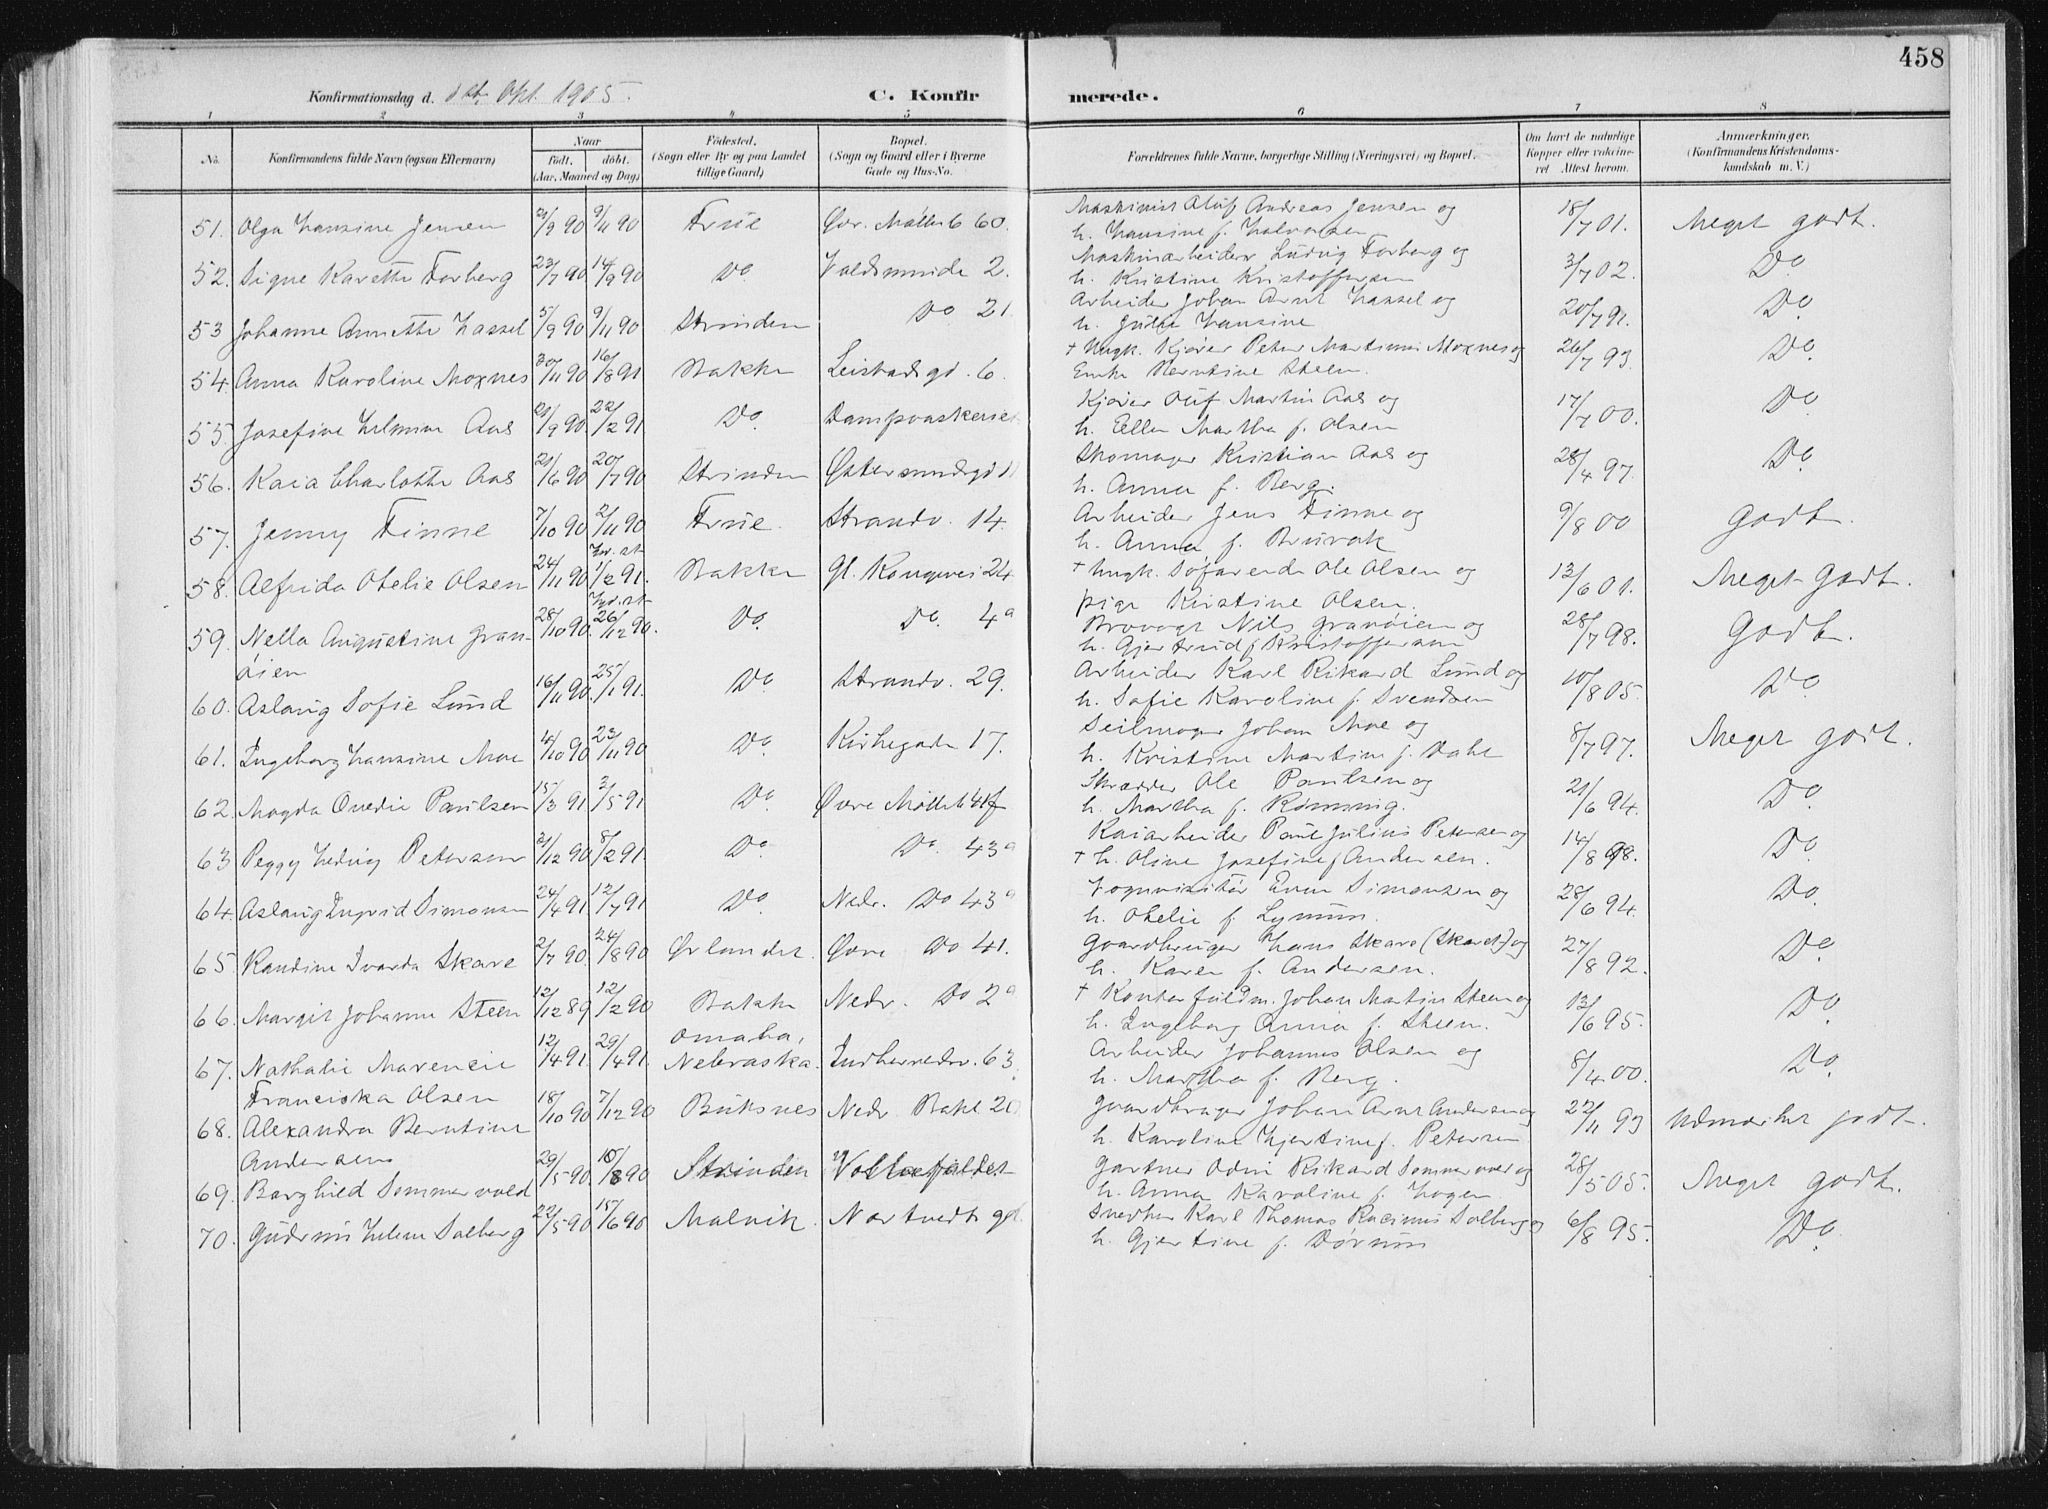 458
Konfirmationsdag d. 1ste Okt. 1905.
C. Konfirmerede.
1 2 3 4 5 6 7 8
No.
Konfirmandens fulde Navn (ogsaa Efternavn)
Naar født. døbt. (Aar, Maaned og Dag)
Fødested. (Sogn eller By og paa Landet tillige Gaard)
Bopæl. (Sogn og Gaard eller i Byerne Gade og Hus-No.
Forældrenes fulde Navne, borgerlige Stilling (Næringsvei) og Bopæl.
Om havt de naturlige Kopper eller vaccineret Attest herom.
Anmærkninger. (Konfirmandens Kristendomskundskab m. V.)
51. Olga Hansine Jensen 21/9 90 9/11 90 Frue Øvr. Møllеb 60. Maskinist Oluf Andreas Jensen og h. Hansine f. Halvorsen 18/7 01. Meget godt.
52. Signe Karette Forberg 23/7 90 14/9 90 Do Voldsminde 2. Maskinarbeider Ludvig Forberg og h. Kristine Kristoffersen 3/7 02. Do
53 Johanne Annette Hassel 5/9 90 9/11 90 Strinden Do 21. Arbeider Johan Arnt Hassel og h. Julie Hansine 20/7 91. Do
54. Anna Karoline Moxnes 30/11 90 16/8 91 Bakke Leistadsgd. 6. + Ungk. Kjører Peter Martinus Moxnes og Enke Berntine Steen. 26/7 93. Do
55. Josefine Helmine Aas 21/9 90. 22/2 91 Do. Dampvaskeriet Kjører Oluf Martin Aas og h. Ellen Martha f. Olsen 17/7 00. Do
56. Kaia Charlotte Aas 21/6 90 20/7 90 Strinden Østersundsgd 11 Skomager Kristian Aas og h. Anna f. Berg. 28/4 97. Do
57. Jenny Finne 7/10 90 2/11 90 Frue. Strandv. 14. Arbeider Jens Finne og h. Anna f. Bruvak 9/8 00 Godt.
58. Alfrida Otelie Olsen 24/11 90 Hv. st 1/2 91. Bakke Gl. Kongevei 24 + Ungk. Søfarende Ole Olsen og pige Kristine Olsen. 13/6 01. Meget Godt.
59. Nella Augustine Granøien 28/10 90. Hjd. st 26/12 90. Do. Do. 4a Brovogt Nils Granøien og h. Gjertrud f Kristoffersen 28/7 98. Godt.
60. Aslaug Sofie Lund 16/11 90. 25/1 91. Do Strandv. 29. Arbeider Karl Rikard Lund og h. Sofie Karoline f. Svendsen 10/8 05. Do
61. Ingeborg Hansine Moe 4/10 90 23/11 90 Do Kirkegade 17. Seilmager Johan Moe og h. Kristine Martine f. Dahl 8/7 97. Meget godt.
62. Magda Ovedie Paulsen 15/3 91 3/5 91 Do Øvre Møllеb 41f Skrædder Ole Paulsen og h. Martha f. Rønning. 21/6 94. Do
63 Peggy Hedvig Petersen 21/12 90 8/2 91. Do Do. 43a Kaiarbeider Paul Julius Petersen og + h. Oline Josefine f Andersen. 14/8 98. Do
64. Aslaug Ingrid Simonsen 24/4 91 12/7 91 Do Nedr. Do 43a Vognvisitør Even Simonsen og h. Otelie f. Lynum. 28/6 94. Do
65. Randine Ivarda Skare 2/7 90. 24/8 90 Ørlandet Øvre Do 41. Gaardbruger Hans Skare (Skaret) og h. Karen f. Andersen. 27/8 92. Do
66. Margit Johanne Steen 12/12 89 12/2 90 Bakke Nedr. Do 2a + Kontorfuldm. Johan Martin Steen og h. Ingeborg Anna f. Steen. 13/6 95. Do
67. Nathalie Marencie Franciska Olsen 12/4 91. 29/4 91. Omaha, Nebraska. Indherredsv. 63. Arbeider Johannes Olsen og h. Martha f. Berg. 8/4 00. Do
68. Alexandra Berntine Andersen 18/10 90 7/12 90 Buksnes Nedr Bakl 20 Gaardbruger Johan Arnt Andersen og h. Karoline Hjertine f. Petersen 22/11 93 Udmærket godt.
69. Borghild Sommervold 29/5 90. 10/8 90 Strinden Vollafaldet Gartner Odin Rikard Sommervold og h. Anna Karoline f. Hogen 28/5 05. Meget godt.
70. Gudrun Helene Solberg 22/5 90 15/6 90 Malvik. Nortvedts gd. Snedker Karl Thomas Rasinus Solberg og h. Gjertine f. Dørum 6/8 95. Do.